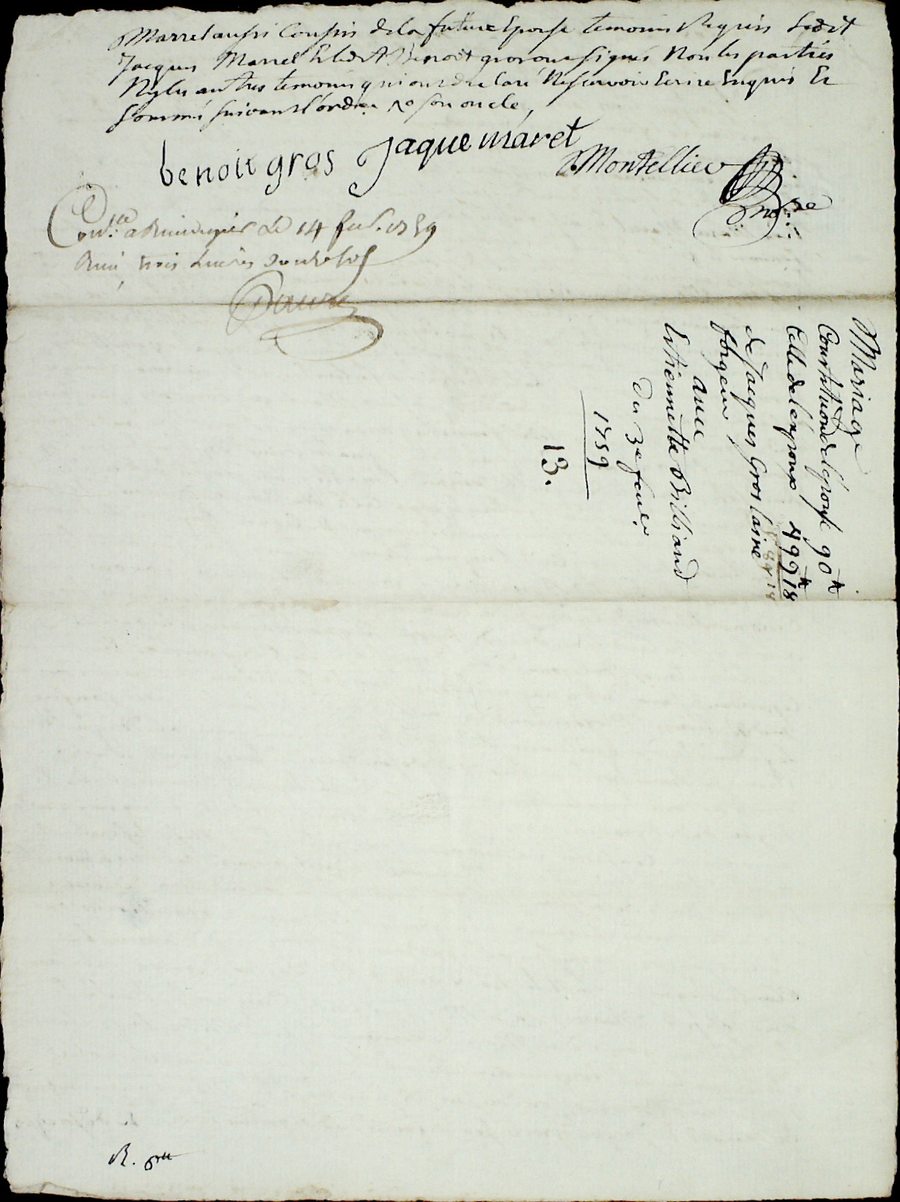 Marrel aussi Cousin de la future Epouse temoins Requis Ledit
Jacques Marrel Et ledit Benoit gros ont signés Non les parties
Ny les autres temoins qui ont declaré Ne scavoir Ecrire Enquis Et
Sommé suivant l'ordce son oncle
benoit gros Jaque maret
Montellier
Conlé a le 14 fev. 1759
Reçu trois Livres sols
Mariage
Constitution de l'épouse 90 ₶
Celle de l'epoux 499 ₶ 18
de Jacques Gros laine
forgeur
avec
Estiennette Billiard
du 3e fevr.
1759
13.
R. 6 ₶